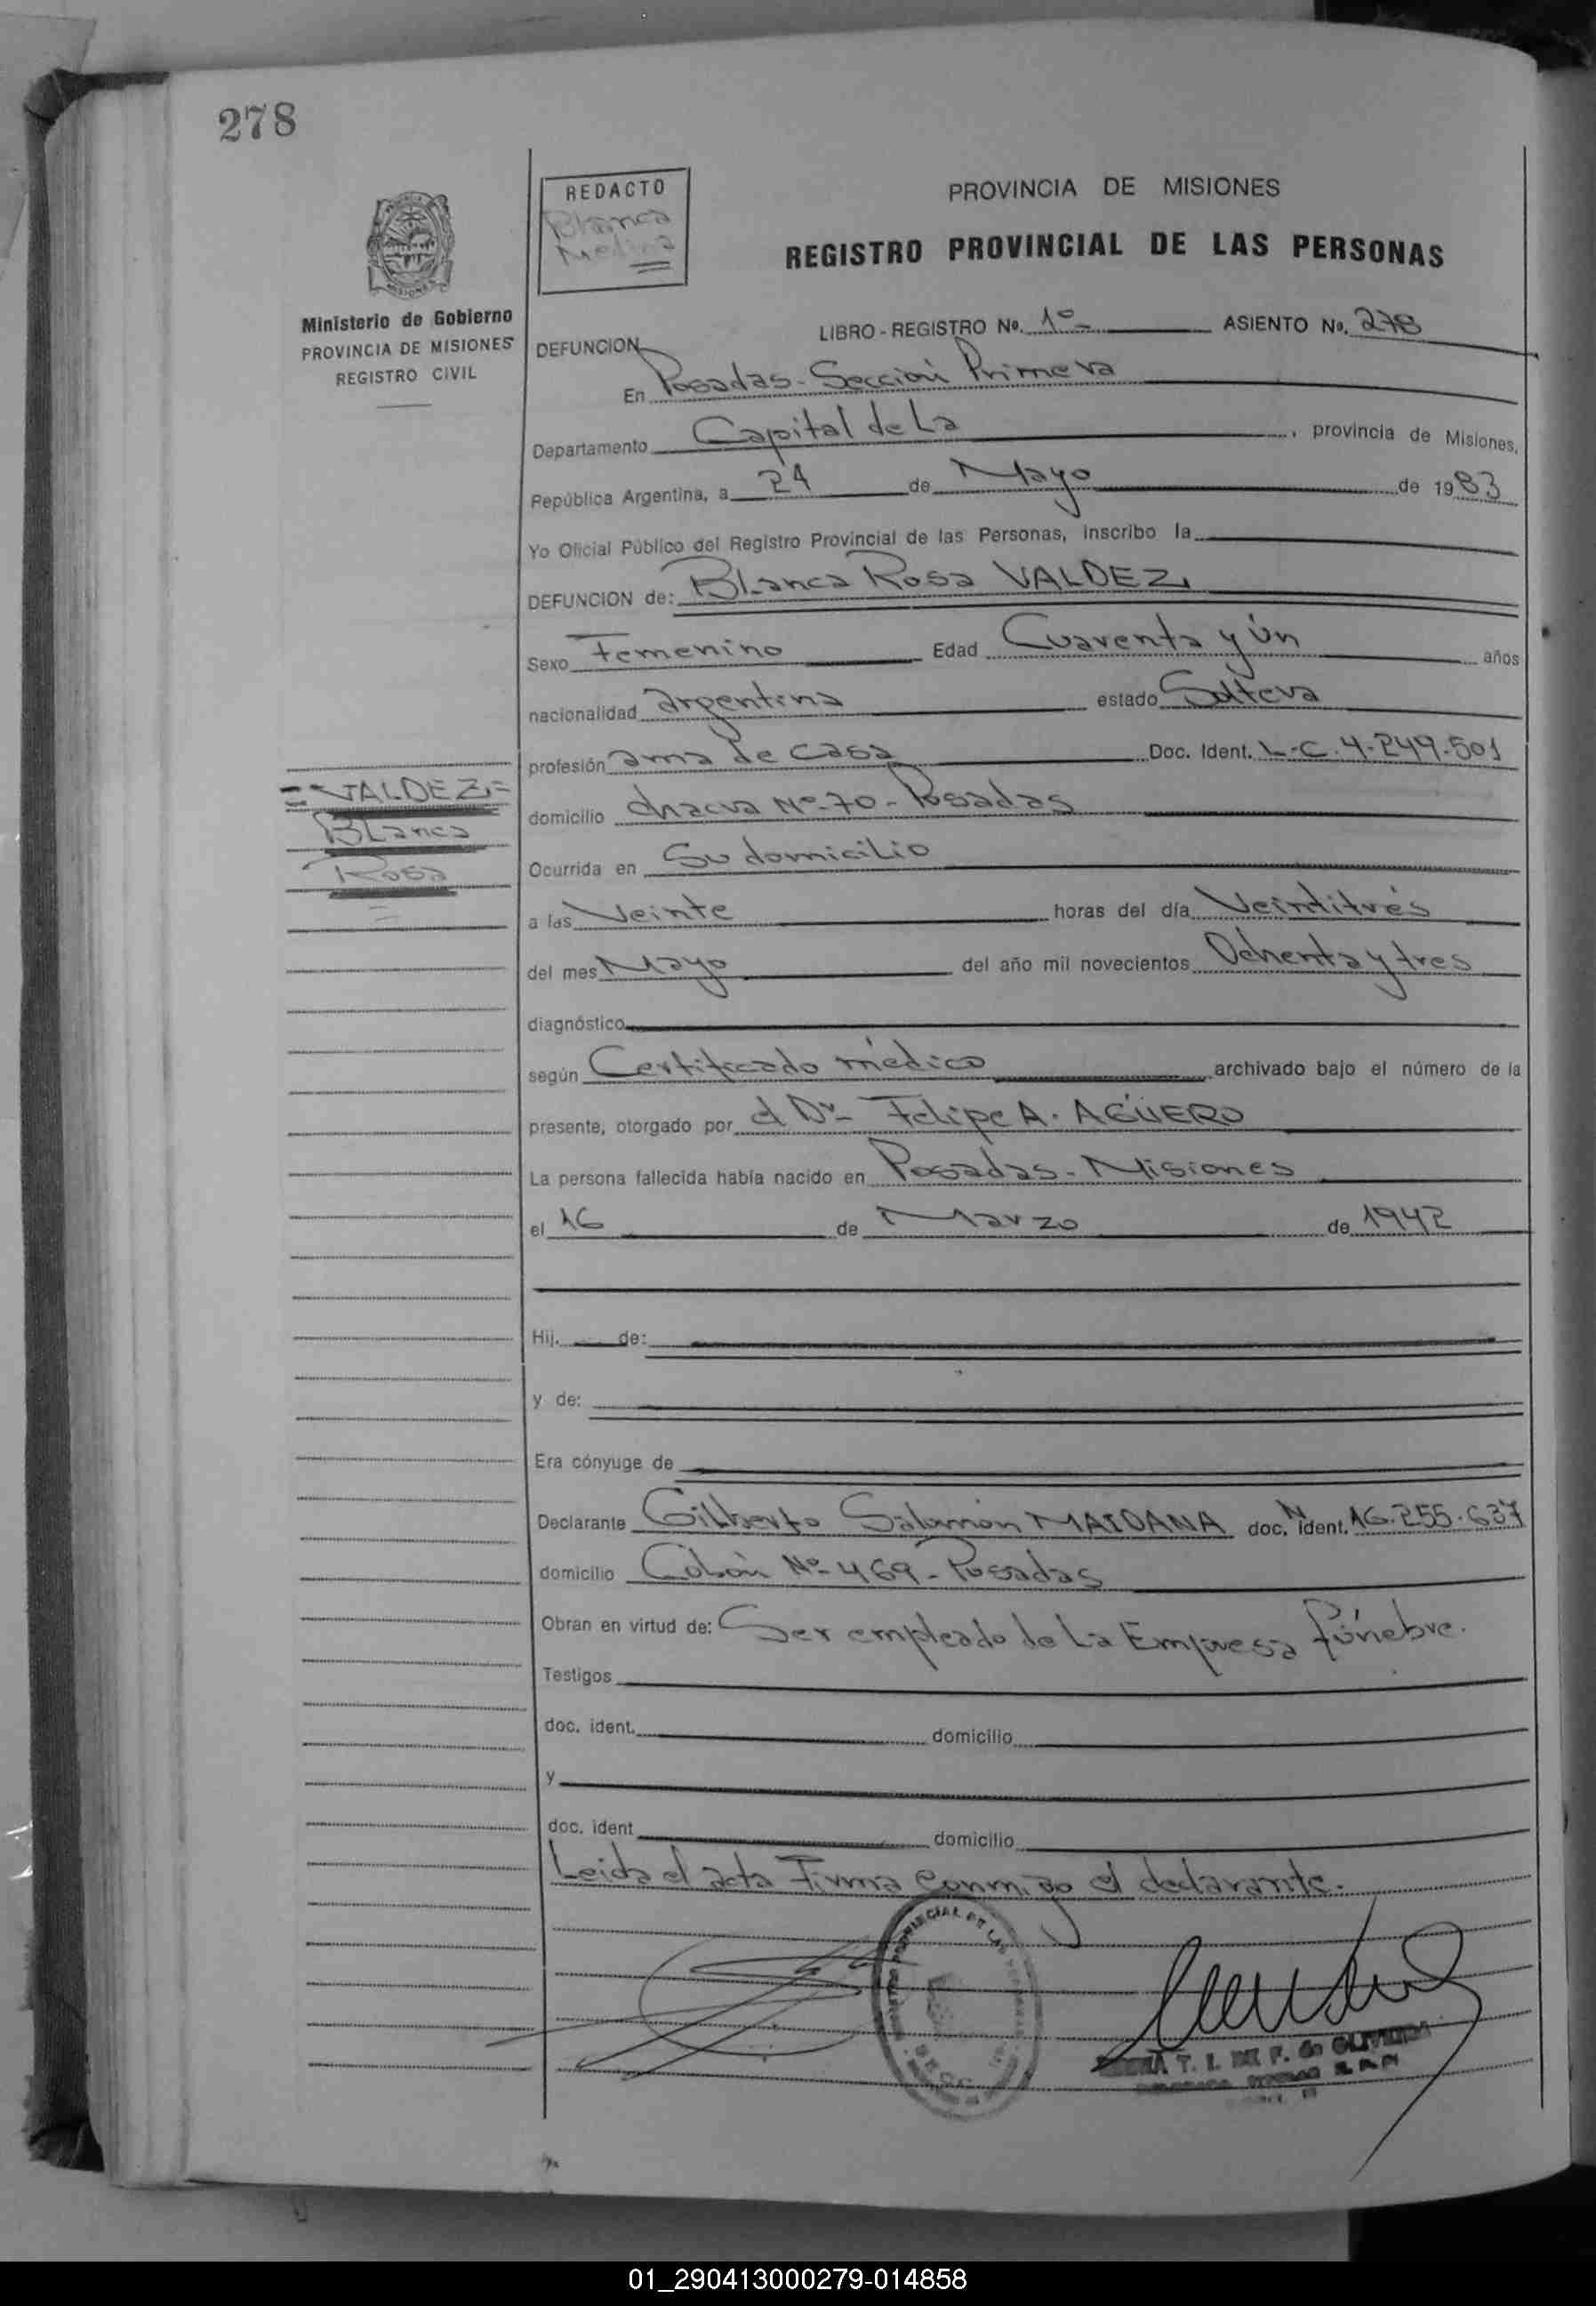 278
REDACTO
Blanca
Medina
PROVINCIA DE MISIONES
REGISTRO PROVINCIAL DE LAS PERSONAS
Ministerio de Gobierno
PROVINCIA DE MISIONES
REGISTRO CIVIL
LIBRO - REGISTRO No. 1º ASIENTO No. 278
DEFUNCION
En Posadas - Sección Primera
Departamento Capital de La , provincia de Misiones,
República Argentina, a 24 de Mayo de 1983
Yo Oficial Público del Registro Provincial de las Personas, inscribo la
DEFUNCION de: Blanca Rosa VALDEZ
Sexo Femenino Edad Cuarenta y ún años
nacionalidad argentina estado Soltera
profesión ama de casa Doc. Ident. L.C. 4.249.501
= VALDEZ =
Blanca
Rosa
=
domicilio chacra Nº 70 - Posadas
Ocurrida en Su domicilio
a las Veinte horas del día Veintitrés
del mes Mayo del año mil novecientos Ochenta y tres
diagnóstico
según Certificado médico archivado bajo el número de la
presente, otorgado por el Dr. Felipe A. AGÜERO
La persona fallecida había nacido en Posadas - Misiones
el 16 de Marzo de 1942
Hij. de:
y de:
Era cónyuge de
Declarante Gilberto Salamón MAIDANA doc. N ident. 16.255.637
domicilio Colón Nº 469 - Posadas
Obran en virtud de: Ser empleado de La Empresa fúnebre.
Testigos
doc. ident. domicilio
y
doc. ident domicilio
Leida el acta Firma conmigo el declarante.
T. I. DE F. de OLIVEIRA
01_290413000279-014858